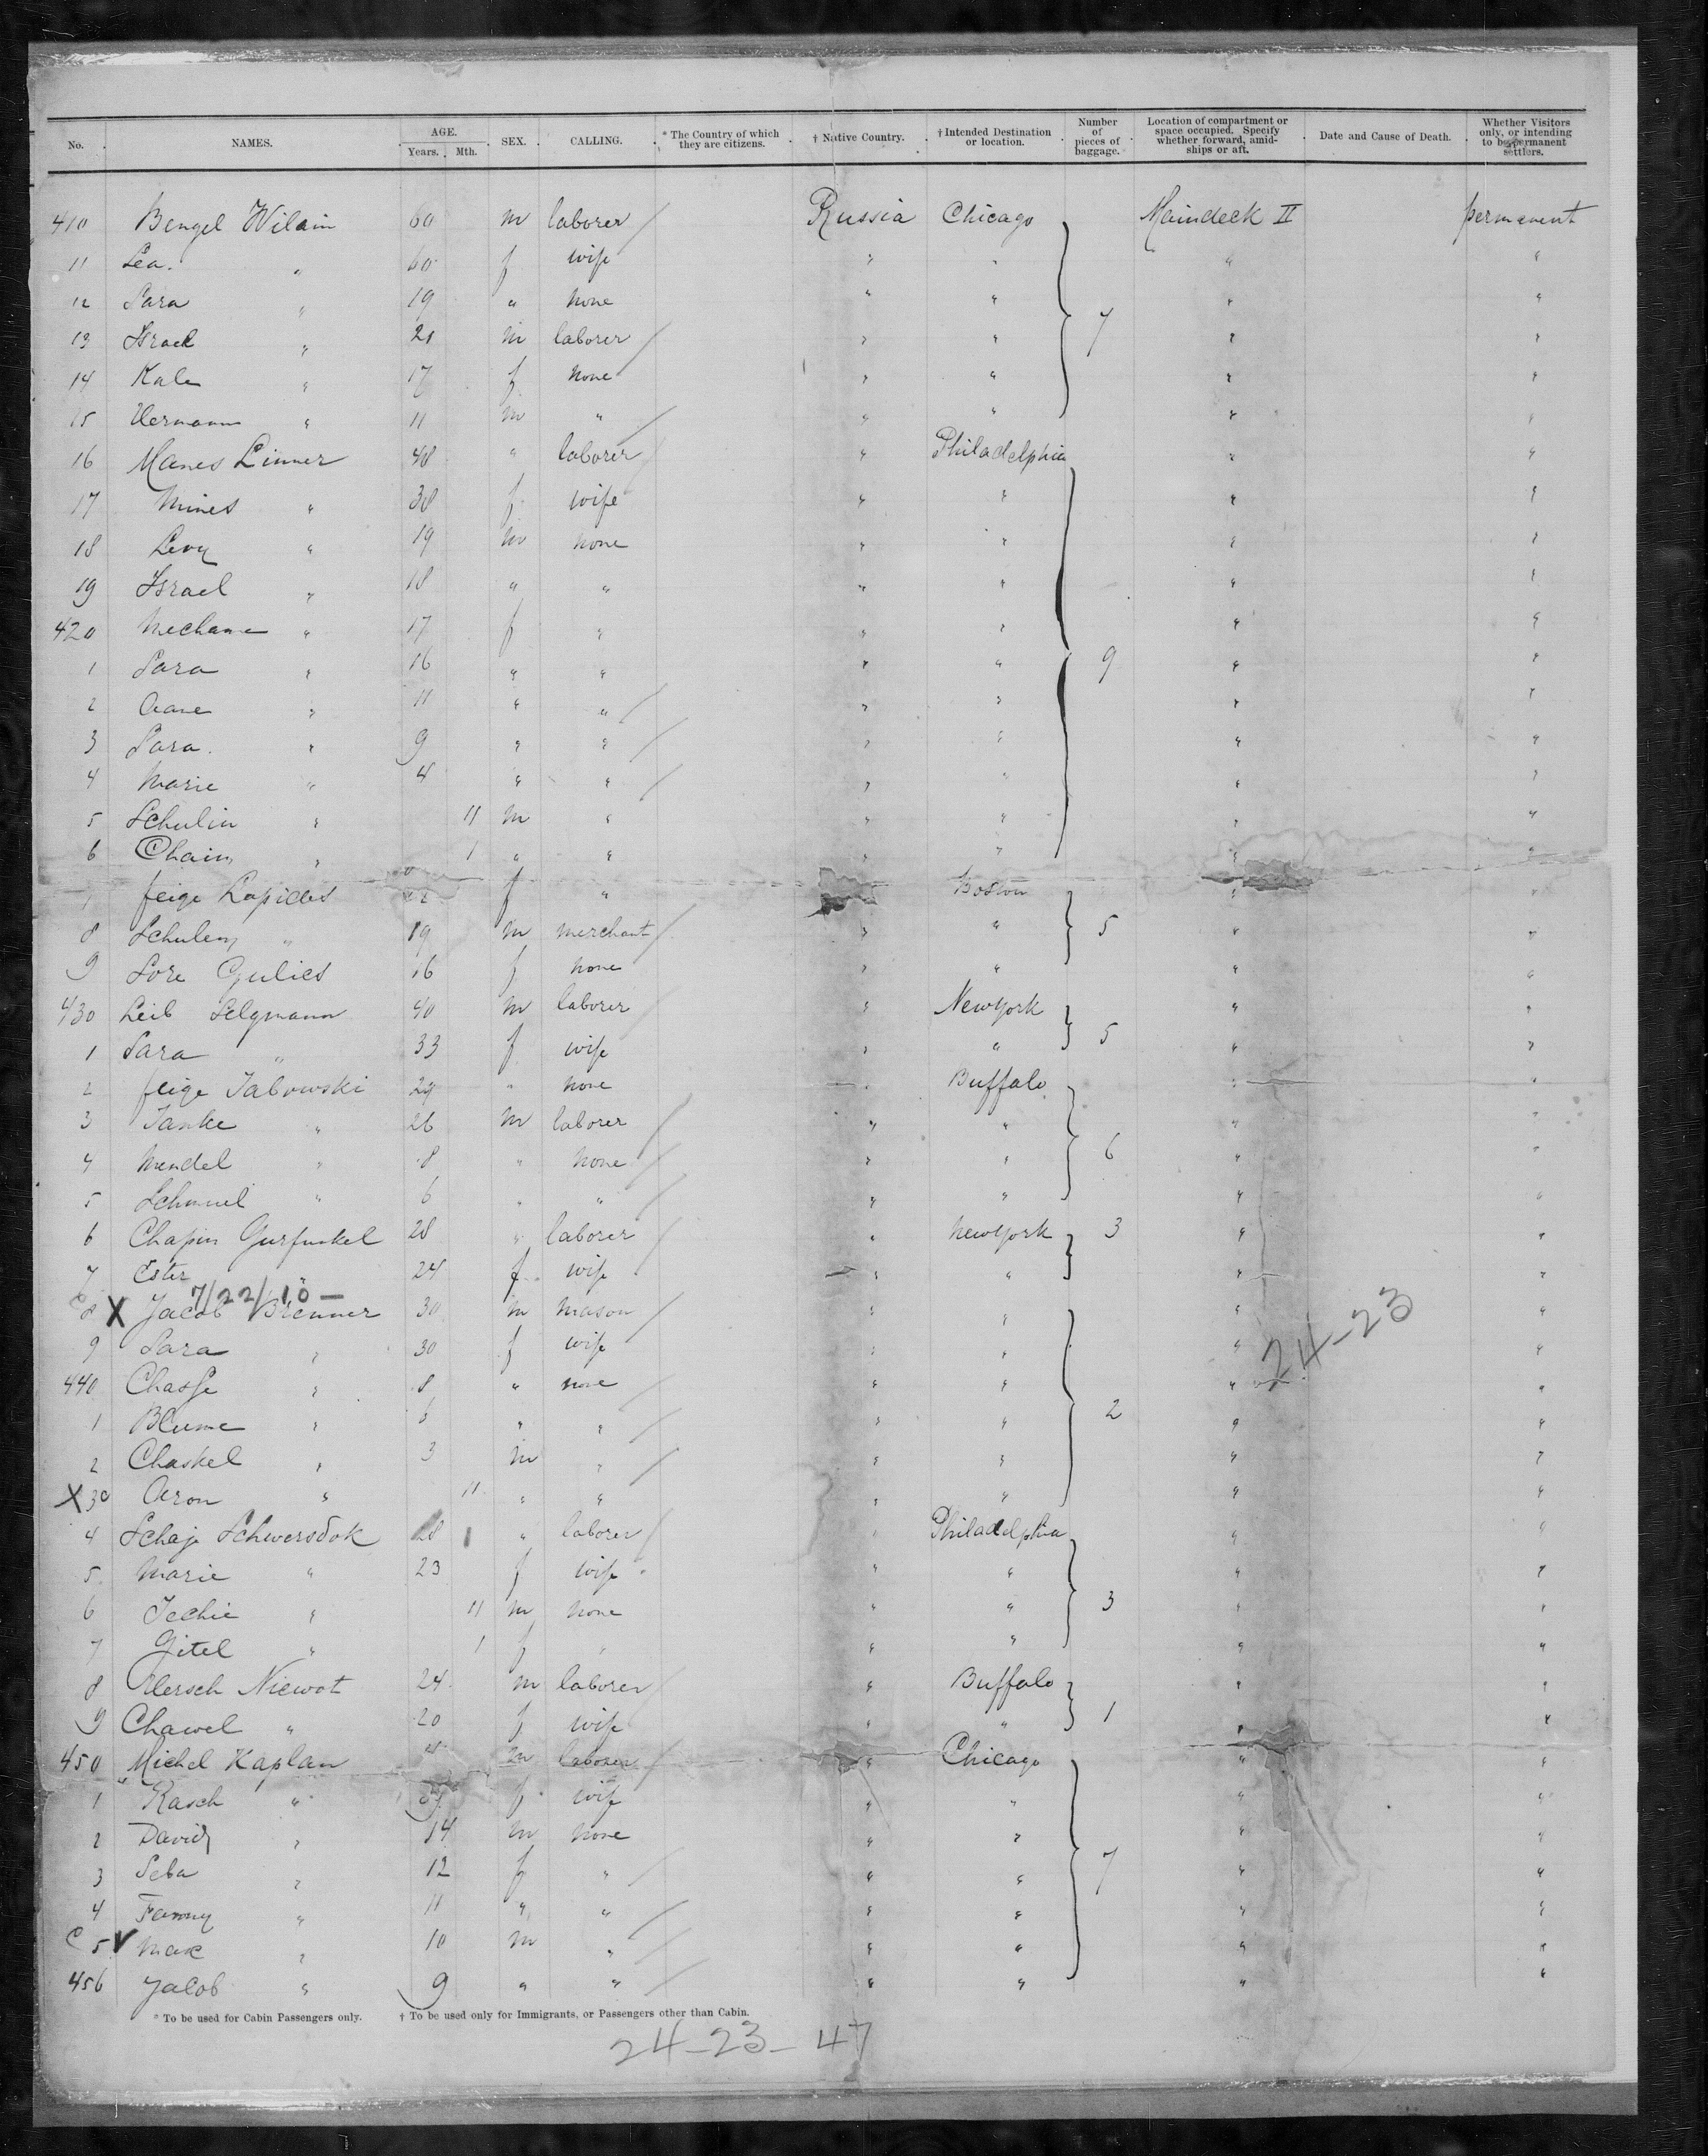 No. NAMES. AGE. Years. Mth. SEX. CALLING. * The Country of which they are citizens. † Native Country. † Intended Destination or location. Number of pieces of baggage. Location of compartment or space occupied. Specify whether forward, amidships or aft. Date and Cause of Death. Whether Visitors only, or intending to be permanent settlers.
410 Bengel Wilain 60 m laborer Russia Chicago Maindeck II permanent
11 Lea. " 60 f wife " " " "
12 Sara " 19 " none " " " "
13 Israel " 21 m laborer " " 7 " "
14 Kale " 17 f none " " " "
15 Hermann " 11 m " " " " "
16 Manes Linner 48 " laborer " Philadelphia " "
17 Mines " 38 f wife " " " "
18 Levy " 19 m none " " " "
19 Israel " 18 " " " " " "
420 Mechame " 17 f " " " " "
1 Sara " 16 " " " " 9 " "
2 " 11 " " " " " "
3 Sara. " 9 " " " " " "
4 Marie " 4 " " " " " "
5 Schulim " 11 m " " " " "
6 Chaim " 1 " " " " " "
7 Feige Lapides f " Boston " "
8 Schulem " 19 m merchant " " 5 " "
9 Sore Gulics 16 f none " " " "
430 Leib Selgmann 40 m laborer " New York " "
1 Sara " 33 f wife " " 5 " "
2 Feige Jabowski 29 " none " Buffalo " "
3 Janke " 26 m laborer " " " "
4 Mendel " 8 " none " " 6 " "
5 Schmuel " 6 " " " " " "
6 Chapin Gurfunkel 28 " laborer " New York 3 " "
7 Ester " 24 f wife " " " "
7/22/10 —
8 X Jacob Brenner 30 m mason " " " "
9 Sara " 30 f wife " " " "
24-23
440 Chasse " 8 " none " " " "
1 Blume " " " " " 2 " "
2 Chaskel " 3 m " " " " "
X 3 Aron " 11 " " " " " "
4 Schaje Schwersdok 28 " laborer " Philadelphia " "
5 Marie " 23 f wife " " " "
6 Jechie " 11 m none " " 3 " "
7 Gitel " 1 f " " " " "
8 Hersch Niewot 24 m laborer " Buffalo " "
9 Chawel " 20 f wife " " 1 " "
450 Michel Kaplan m laborer " Chicago " "
1 Rasch " f wife " " " "
2 David " 14 m none " " " "
3 Seba " 12 f " " " 7 " "
4 Fanny " 11 " " " " " "
c 5 V Max " 10 m " " " " "
456 Jacob " 9 " " " " "
* To be used for Cabin Passengers only. † To be used only for Immigrants, or Passengers other than Cabin.
24-23-47